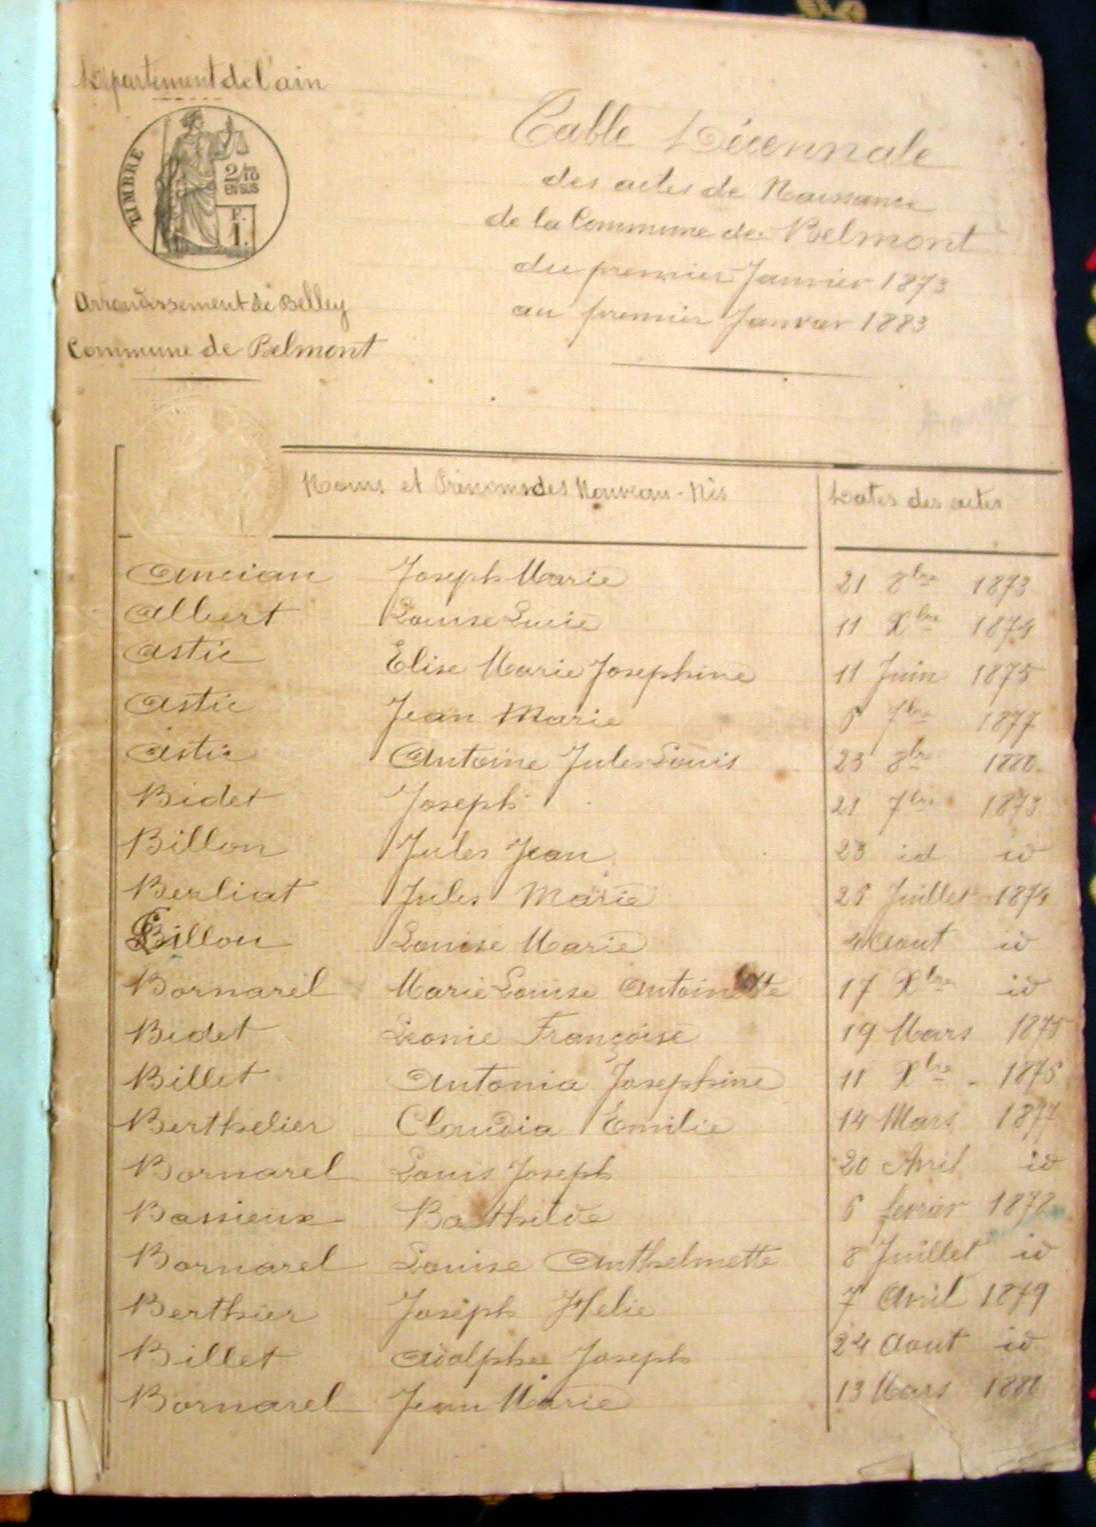 Département de l'ain
TIMBRE
2/10
EN SUS
F.
1.
Arrondissement de Belley
Commune de Belmont
Table Décennale
des actes de Naissance
de la Commune de Belmont
du premier Janvier 1873
au premier Janvier 1883
Noms et Prénoms des Nouveau-Nés Dates des actes
Ancian Joseph Marie 21 8bre 1873
Albert Louise Lucie 11 Xbre 1874
Astic Elise Marie Josephine 11 Juin 1875
Astic Jean Marie 6 7bre 1877
Astic Antoine Jules Louis 23 8bre 1880
Bidet Joseph 21 7bre 1873
Billon Jules Jean 23 id id
Berliat Jules Marie 25 Juillet 1874
Billon Louise Marie Aout id
Bornarel Marie Louise Antoinette 17 Xbre id
Bidet Léonie Françoise 19 Mars 1875
Billet Antonia Josephine 11 Xbre 1875
Berthelier Claudia Emilie 14 Mars 1877
Bornarel Louis Joseph 20 Avril id
Bassieux Bathilde 6 fevrier 1878
Bornarel Louise Anthelmette 8 Juillet id
Berthier Joseph Helie 7 Avril 1879
Billet Adolphe Joseph 24 Aout id
Bornarel Jean Marie 13 Mars 1880